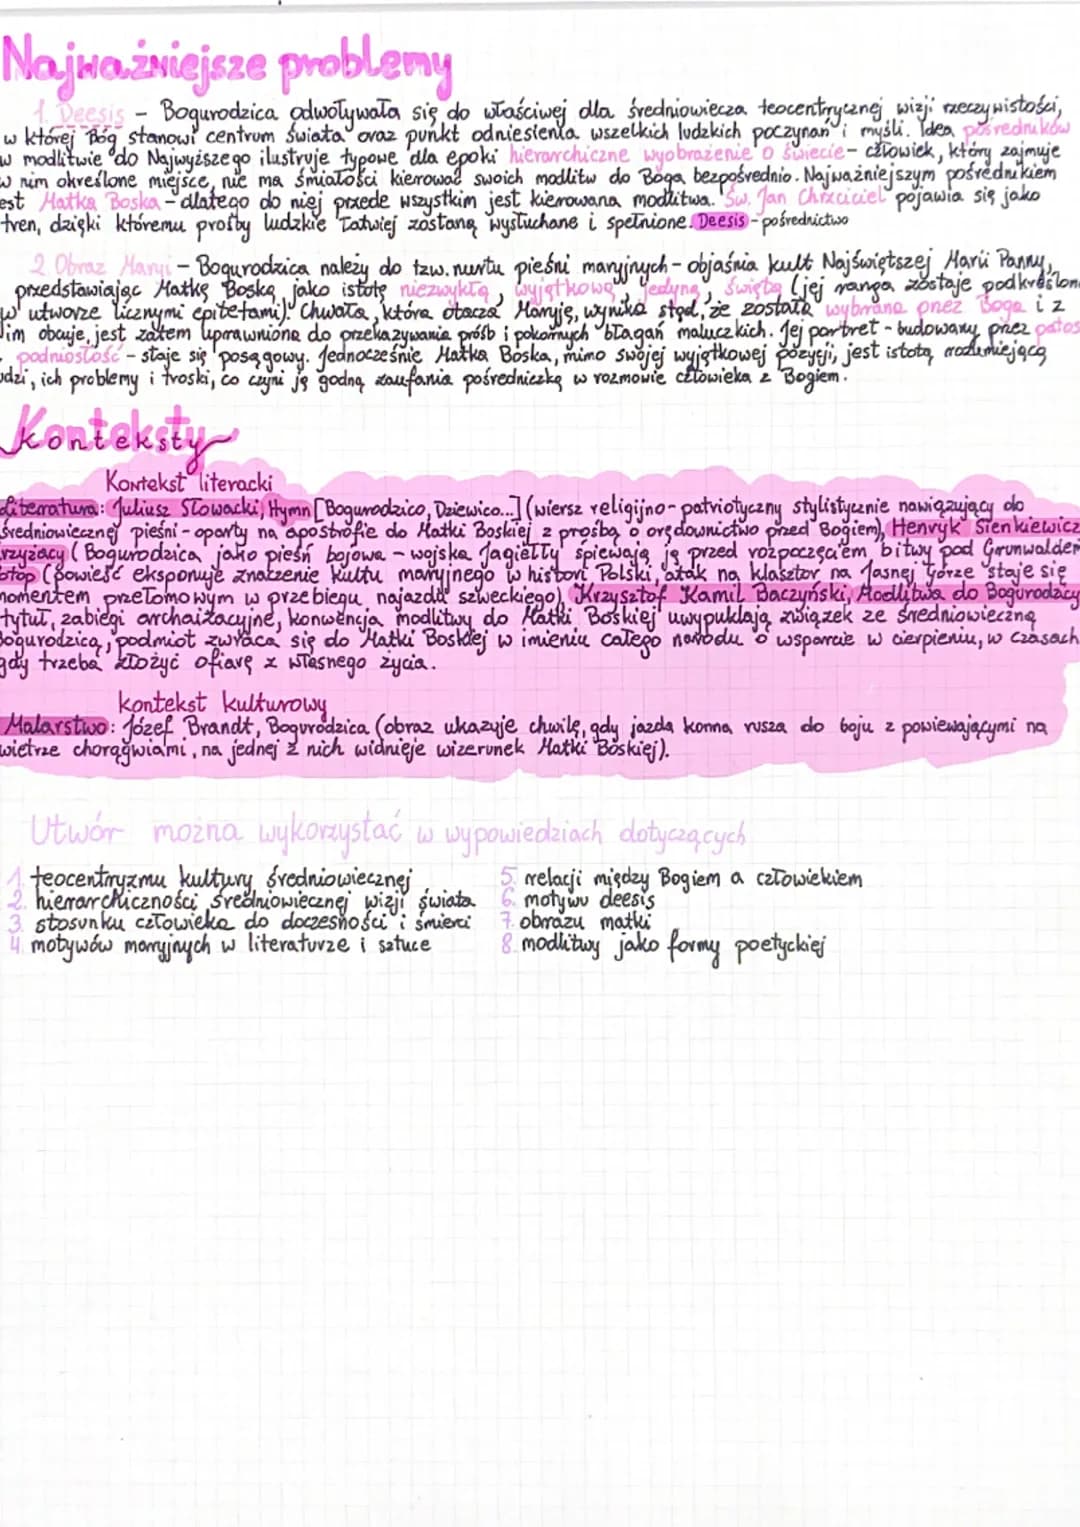 Najważniejsze problemy
1. Deesis - Bogurodzica odwoływała się do właściwej dla średniowiecza teocentrycznej wizji rzeczywistości,
w której Bóg stanowi centrum świata oraz punkt odniesienia wszelkich ludzkich poczynań i myśli. Idea pośredników
w modlitwie do Najwyższego ilustruje typowe dla epoki hierarchiczne wyobrażenie o świecie - człowiek, który zajmuje
w nim określone miejsce, nie ma śmiałości kierować swoich modlitw do Boga bezpośrednio. Najważniejszym pośrednikiem
est Matka Boska - dlatego do niej przede wszystkim jest kierowana modlitwa. Św. Jan Chrzciciel pojawia się jako
tren, dzięki któremu prośby ludzkie łatwiej zostaną wysłuchane i spełnione. Deesis - pośrednictwo
2. Obraz Maryi - Bogurodzica należy do tzw. nurtu pieśni maryjnych - objaśnia kult Najświętszej Marii Panny,
przedstawiając Matkę Boską jako istotę niezwykłą, wyjątkową, jedyną, świętą (jej ranga zostaje podkreślon
w utworze licznymi epitetami). Chwała, która otacza Maryję, wynika stąd, że została wybrana przez Boga i z
im obcuje, jest zatem uprawniona do przekazywania próśb i pokornych błagań maluczkich. Jej portret - budowany przez patos
podniosłość - staje się posągowy. Jednocześnie Matka Boska, mimo swojej wyjątkowej pozycji, jest istotą rozumiejącą
udzi, ich problemy i troski, co czyni ją godną zaufania pośredniczką w rozmowie człowieka z Bogiem.
Konteksty
Kontekst literacki
Literatura: Juliusz Słowacki, Hymn [Bogurodzico, Dziewico...] (wiersz religijno-patriotyczny stylistycznie nawiązujący do
średniowiecznej pieśni - oparty na apostrofie do Matki Boskiej z prośbą o orędownictwo przed Bogiem), Henryk Sienkiewicz
rzyżacy (Bogurodzica jako pieśń bojowa - wojska Jagiełły śpiewają ją przed rozpoczęciem bitwy pod Grunwaldem
otop (powieść eksponuje znaczenie kultu maryjnego w histori Polski, atak na klasztor na Jasnej Górze staje się
momentem przełomowym w przebiegu najazdu szweckiego), Krzysztof Kamil Baczyński, Modlitwa do Bogurodzicy
tytuł, zabiegi archaizacyjne, konwencja modlitwy do Matki Boskiej uwypuklają związek ze średniowieczną
Bogurodzicą, podmiot zwraca się do Matki Boskiej w imieniu całego narodu o wsparcie w cierpieniu, w czasach
gdy trzeba złożyć ofiarę z własnego życia.
kontekst kulturowy
Malarstwo: Józef Brandt, Bogurodzica (obraz ukazuje chwilę, gdy jazda konna rusza do boju z powiewającymi na
wietrze chorągwiami, na jednej z nich widnieje wizerunek Matki Boskiej).
Utwór można wykorzystać w wypowiedziach dotyczących
1. teocentryzmu kultury średniowiecznej
2. hierarchiczności średniowiecznej wizji świata
3. stosunku człowieka do doczesności i śmierci
4. motywów maryjnych w literaturze i sztuce
5. relacji między Bogiem a człowiekiem
6. motywu deesis
7. obrazu matki
8. modlitwy jako formy poetyckiej